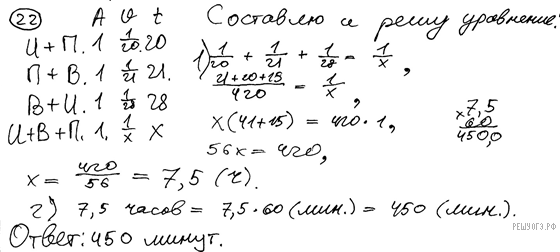 22 A v t
И+П. 1 1/20 20
П+В. 1 1/21 21.
В+И. 1 1/28 28
И+В+П. 1. 1/x x
Составлю и решу уравнение.
1) 1/20 + 1/21 + 1/28 = 1/x,
21+20+15/420 = 1/x,
x(41+15) = 420·1,
56x = 420,
x = 420/56 = 7,5 (ч).
7,5
×60
450,0
2) 7,5 часов = 7,5·60 (мин.) = 450 (мин.).
Ответ: 450 минут.
РЕШУОГЭ.РФ